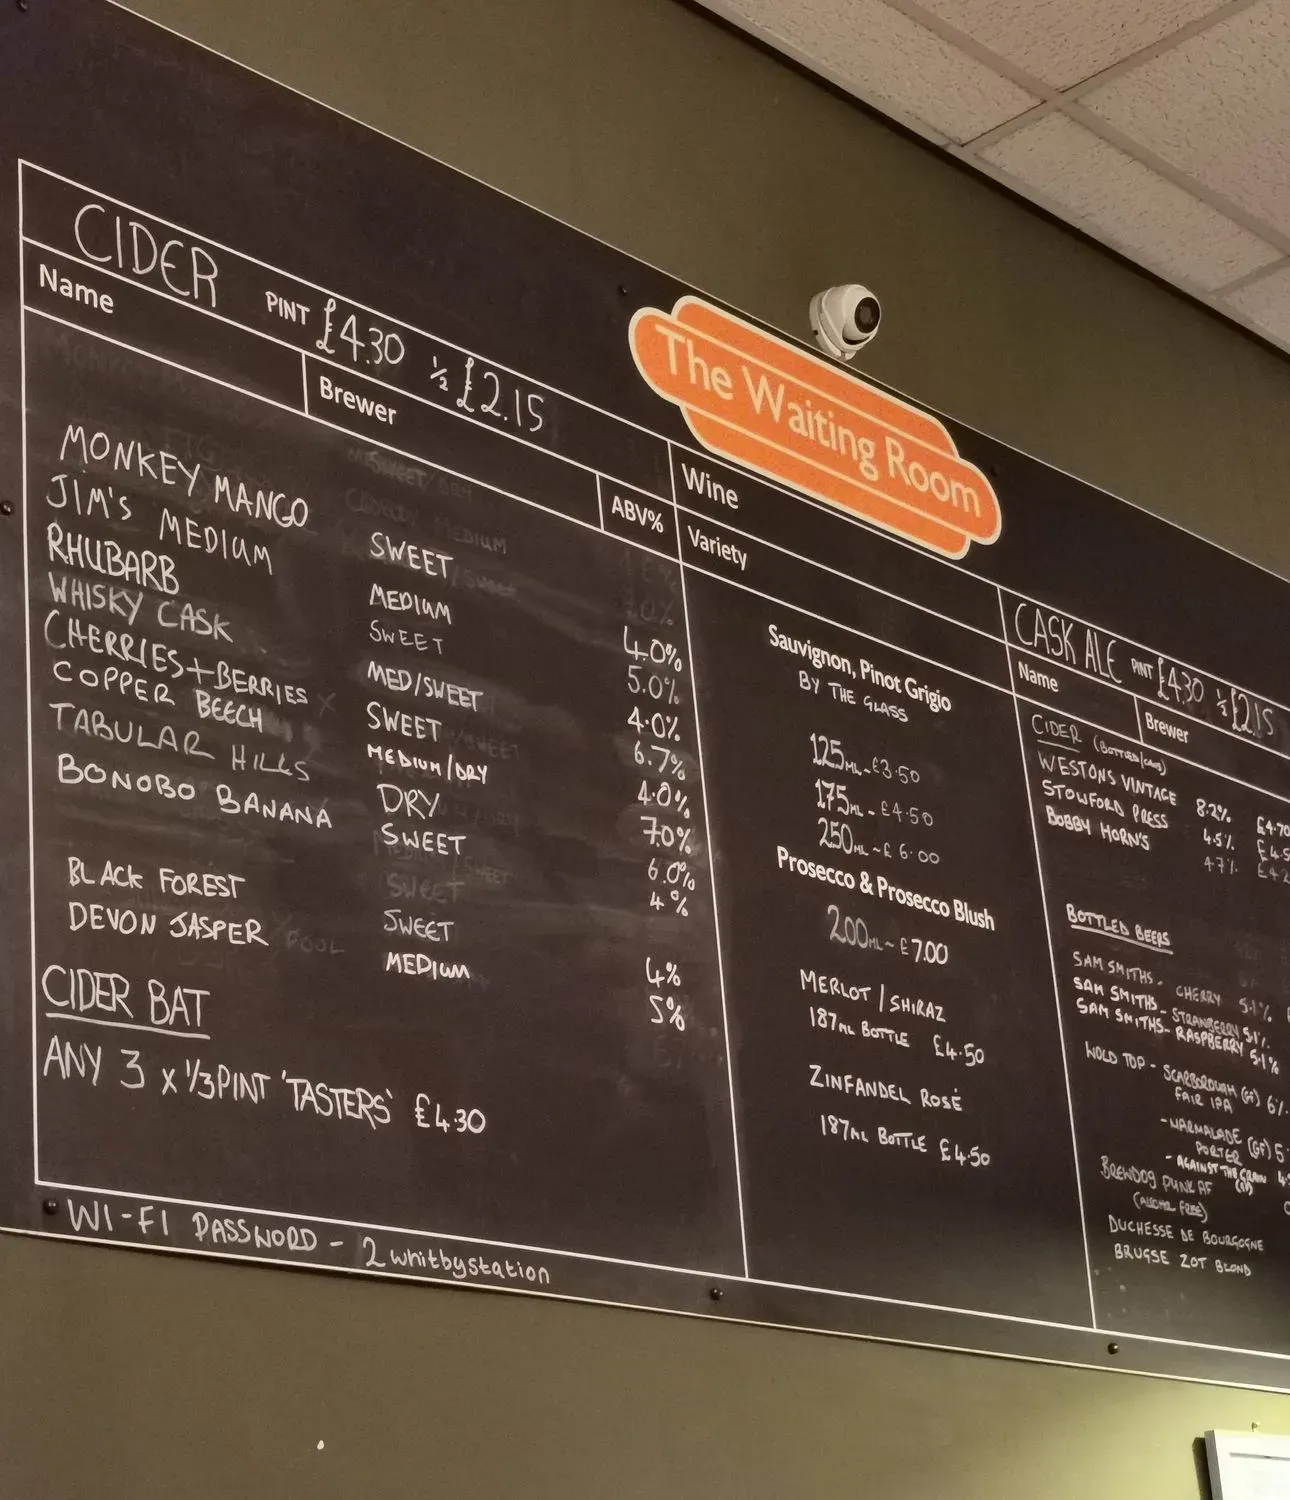 The Waiting Room
CIDER PINT £4.30 ½ £2.15
Name Brewer ABV%
MONKEY MANGO SWEET 4.0%
JIM'S MEDIUM MEDIUM 5.0%
RHUBARB SWEET 4.0%
WHISKY CASK MED/SWEET 6.7%
CHERRIES+BERRIES SWEET 4.0%
COPPER BEECH MEDIUM/DRY 7.0%
TABULAR HILLS DRY 6.0%
BONOBO BANANA SWEET 4%
BLACK FOREST SWEET 4%
DEVON JASPER MEDIUM 5%
CIDER BAT
ANY 3 x 1/3 PINT 'TASTERS' £4.30
WI-FI PASSWORD - 2whitbystation
Wine
Variety
Sauvignon, Pinot Grigio
BY THE GLASS
125ML - £3.50
175ML - £4.50
250ML - £6.00
Prosecco & Prosecco Blush
200ML - £7.00
MERLOT / SHIRAZ
187ML BOTTLE £4.50
ZINFANDEL ROSÉ
187ML BOTTLE £4.50
CASK ALE PINT £4.30 ½ £2.15
Name Brewer
CIDER (BOTTLES/CANS)
WESTONS VINTAGE 8.2% £4.70
STOWFORD PRESS 4.5% £4.5
BOBBY HORN'S 4.7% £4.2
BOTTLED BEERS
SAM SMITHS - CHERRY 5.1%
SAM SMITHS - STRAWBERRY 5.1%
SAM SMITHS - RASPBERRY 5.1%
WOLD TOP - SCARBOROUGH (GF) 6%
FAIR IPA
- MARMALADE (GF) 5
PORTER
- AGAINST THE GRAIN 4
BREWDOG PUNK AF
(ALCOHOL FREE)
DUCHESSE DE BOURGOGNE
BRUGSE ZOT BLOND